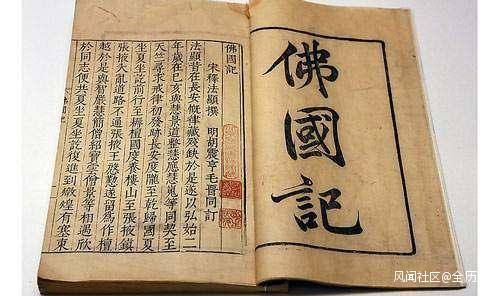 佛國記
佛國記
宋釋法顯撰 明胡震亨毛晉同訂
法顯昔在長安慨律藏殘缺於是遂以弘始二
年歲在己亥與慧景道整慧應慧嵬等同契至
天竺尋求戒律初發跡長安度隴至乾歸國夏
坐夏坐訖前行至耨檀國度養樓山至張掖鎮
張掖大亂道路不通張掖王慇懃遂留爲作檀
越於是與智嚴慧簡僧紹寶雲僧景等相遇欣
於同志便共夏坐夏坐訖復進到燉煌有塞東
风闻社区@全历